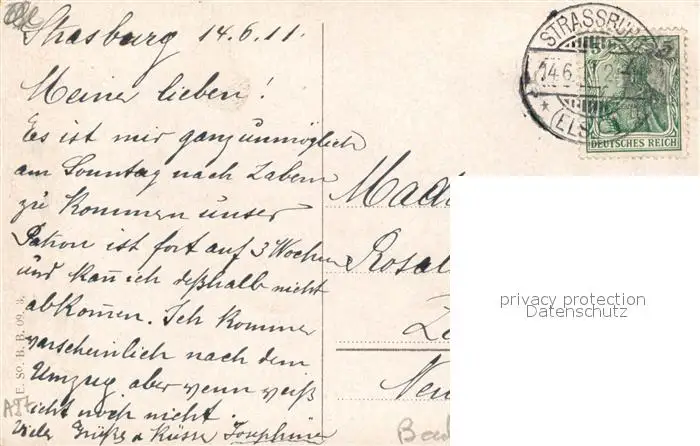 Strasburg 14.6.11.
Meine lieben!
Es ist mir ganz unmöglich
am Sonntag nach Zabern
zu kommen unser
Patron ist fort auf 3 Wochen
und kan̄ ich deßhalb nicht
abkom̄en. Ich komme
warscheinlich nach dem
Umzug aber wenn weiß
ich noch nicht.
Viele Grüße u Küsse Josephine
E. So. B. B. 09. 3.
STRASSBURG
14.6.
(ELS
5
DEUTSCHES REICH
Mad
Rosal
Za
Neu
privacy protection
Datenschutz
Bad